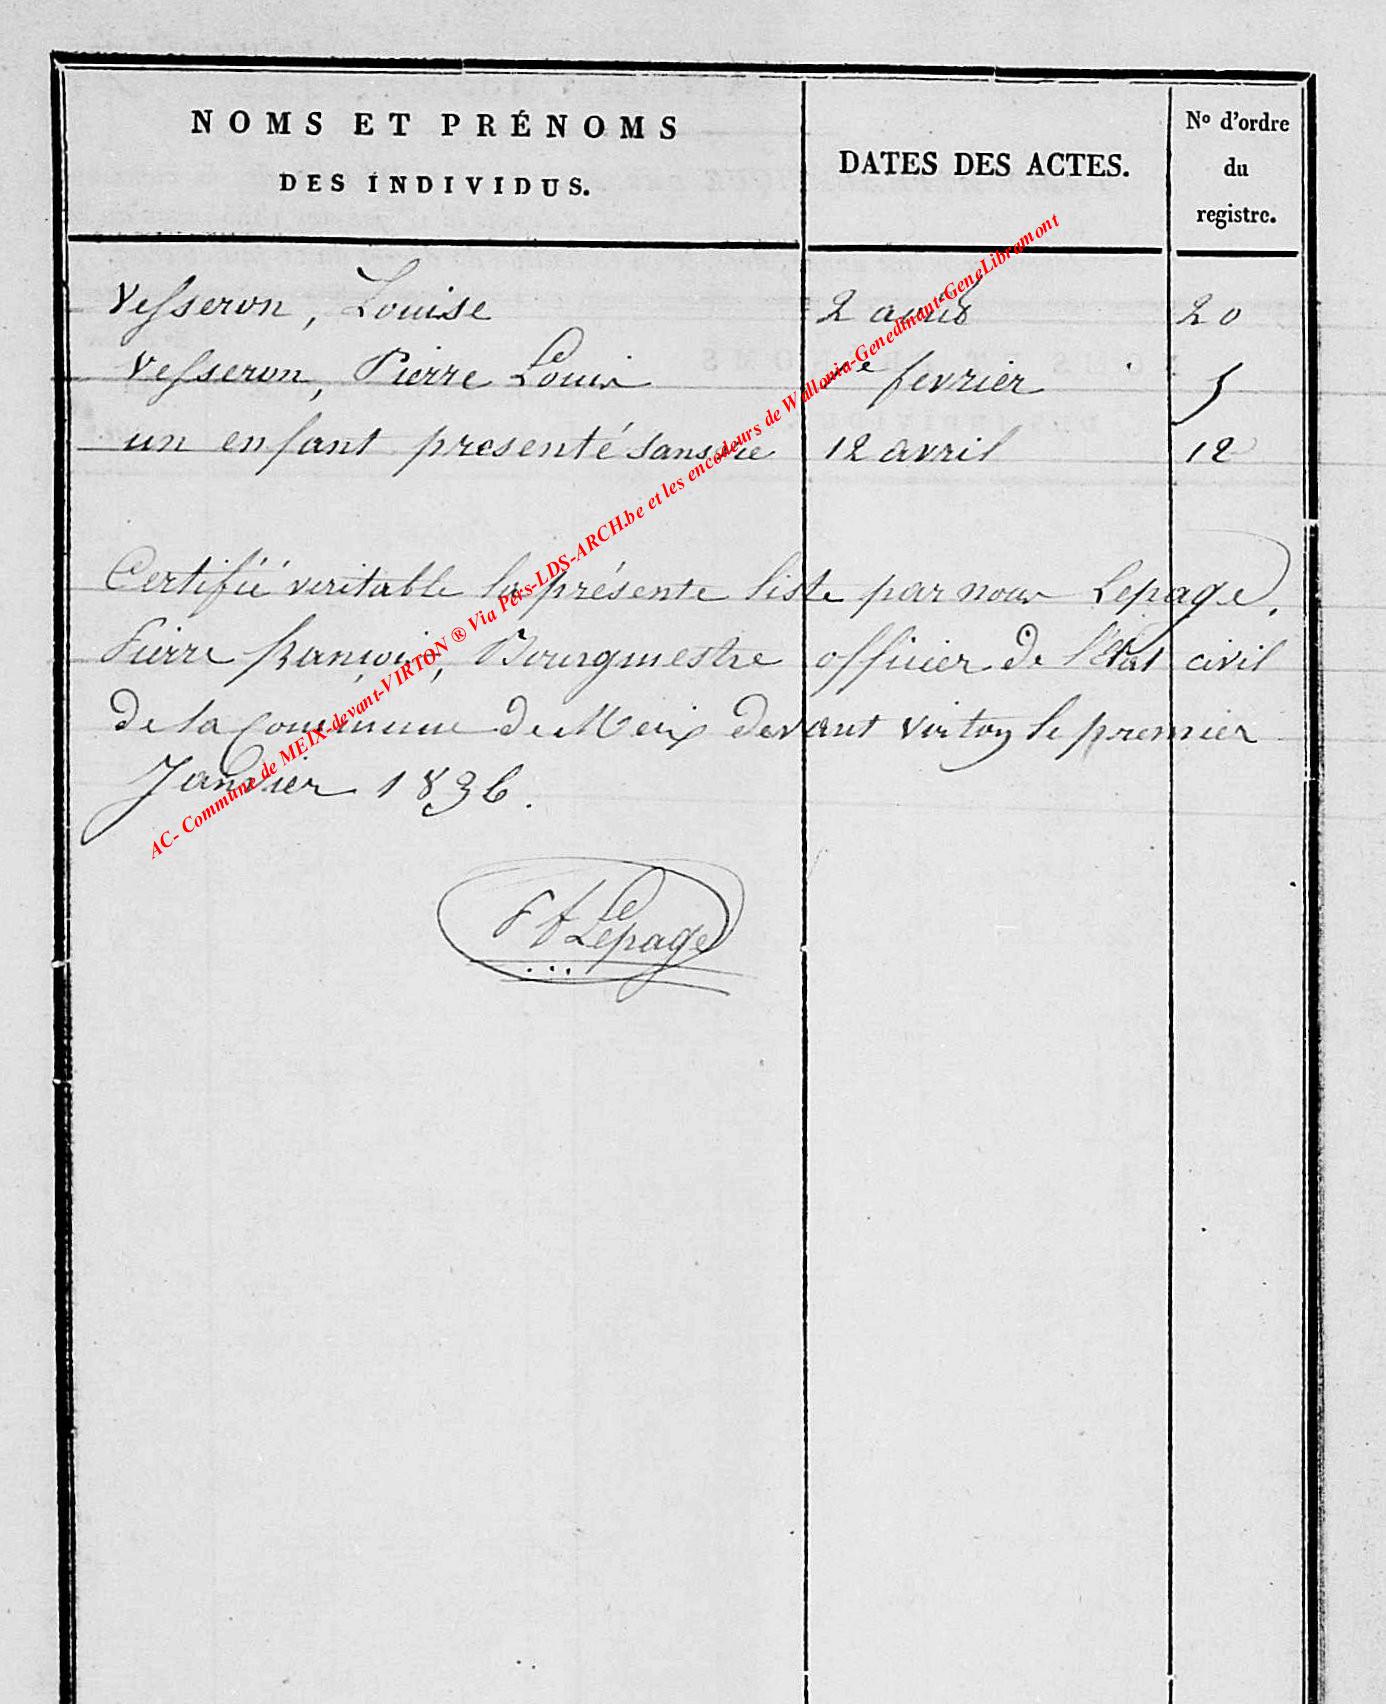 NOMS ET PRÉNOMS
DES INDIVIDUS.
DATES DES ACTES.
No d'ordre
du
registre.
Vesseron, Louise 2 août 20
Vesseron, Pierre Louis 1er fevrier 5
un enfant presenté sans vie 12 avril 12
Certifié veritable la présente liste par nous Lepage,
Pierre françois, Bourgmestre officier de l'état civil
de la Commune de Meix devant Virton le premier
Janvier 1836.
Lepage
AC- Commune de MEIX-devant-VIRTON ® Via Pers-LDS-ARCH.be et les encodeurs de Wallonia-Genedinant-GeneLibramont